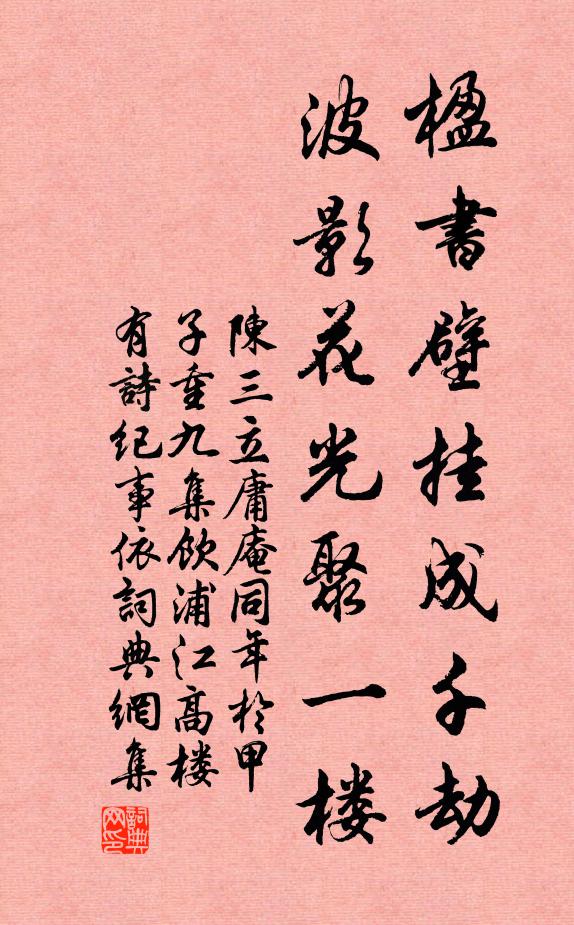 楹書壁挂成千劫
波影花光聚一楼
陳三立庸庵同年於甲
子重九集飲浦江高楼
有詩纪事依詞典網集
詞典
网印